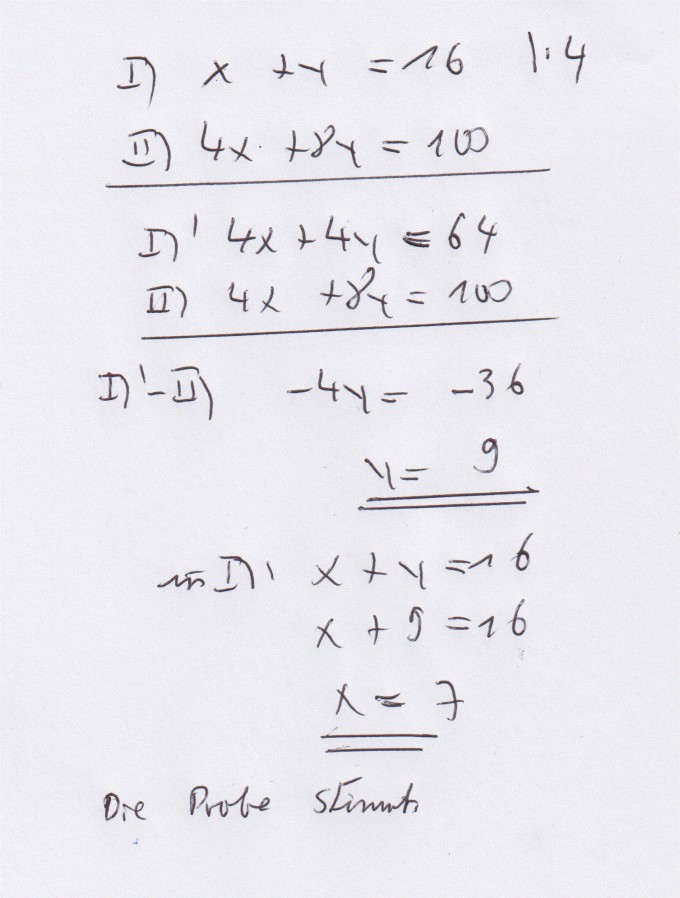 I) x + y = 16 | · 4
II) 4x + 8y = 100
I)' 4x + 4y = 64
II) 4x + 8y = 100
I)' - II) -4y = -36
y = 9
in I)' x + y = 16
x + 9 = 16
x = 7
Die Probe stimmt.